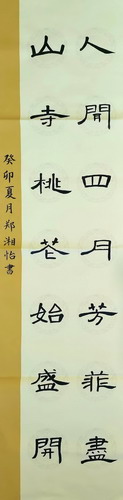 人間四月芳菲盡
山寺桃花始盛開
癸卯夏月郑湘怡书